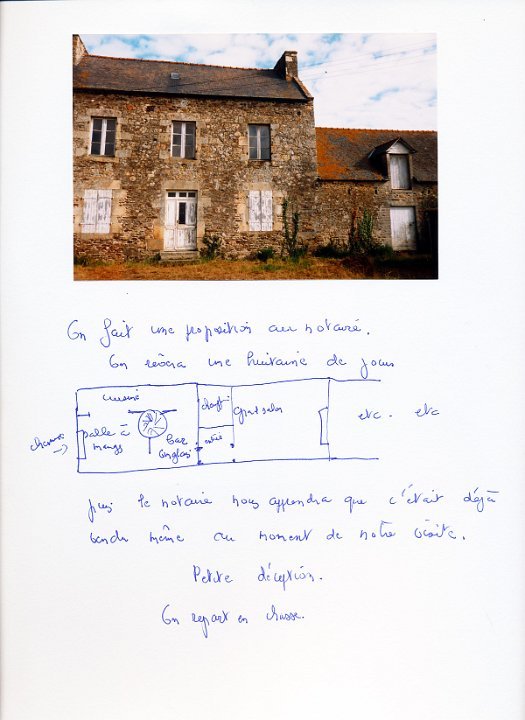 On fait une proposition au notaire.
On rêvera une huitaine de jours
cuisine
chauff
Grd salon
etc. etc
salle à
mangr
bar
anglais
entrée
cheminée
puis le notaire nous apprendra que c'était déjà
vendu même au moment de notre visite.
Petite déception.
On repart en chasse.